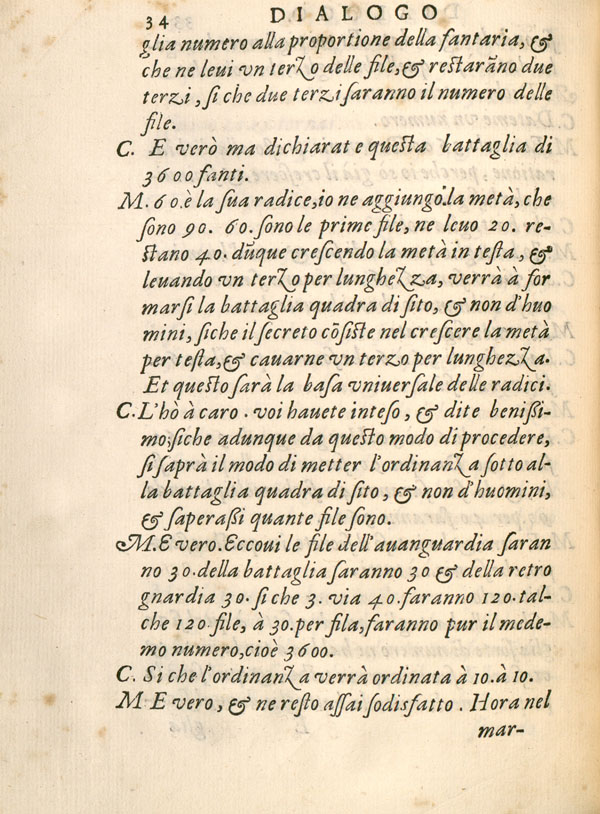 34 DIALOGO
glia numero alla proportione della fantaria, &
che ne leui vn terzo delle file, & restarāno due
terzi, si che due terzi saranno il numero delle
file.
C. E verò ma dichiarat e questa battaglia di
3600 fanti.
M. 60. è la sua radice, io ne aggiungo. la metà, che
sono 90. 60. sono le prime file, ne leuo 20. re-
stano 40. dūque crescendo la metà in testa, &
leuando vn terzo per lunghezza, verrà à for
marsi la battaglia quadra di sito, & non d'huo
mini, siche il secreto cōsiste nel crescere la metà
per testa, & cauarne vn terzo per lunghezza.
Et questo sarà la basa vniuersale delle radici.
C. L'hò à caro. voi hauete inteso, & dite benißi-
mo; siche adunque da questo modo di procedere,
si saprà il modo di metter l'ordinanza sotto al-
la battaglia quadra di sito, & non d'huomini,
& saperaßi quante file sono.
M. E vero. Eccoui le file dell'auanguardia saran
no 30. della battaglia saranno 30 & della retro
gnardia 30. si che 3. via 40. faranno 120. tal-
che 120 file, à 30. per fila, faranno pur il mede-
mo numero, cioè 3600.
C. Si che l'ordinanza verrà ordinata à 10. à 10.
M. E vero, & ne resto assai sodisfatto. Hora nel
mar-